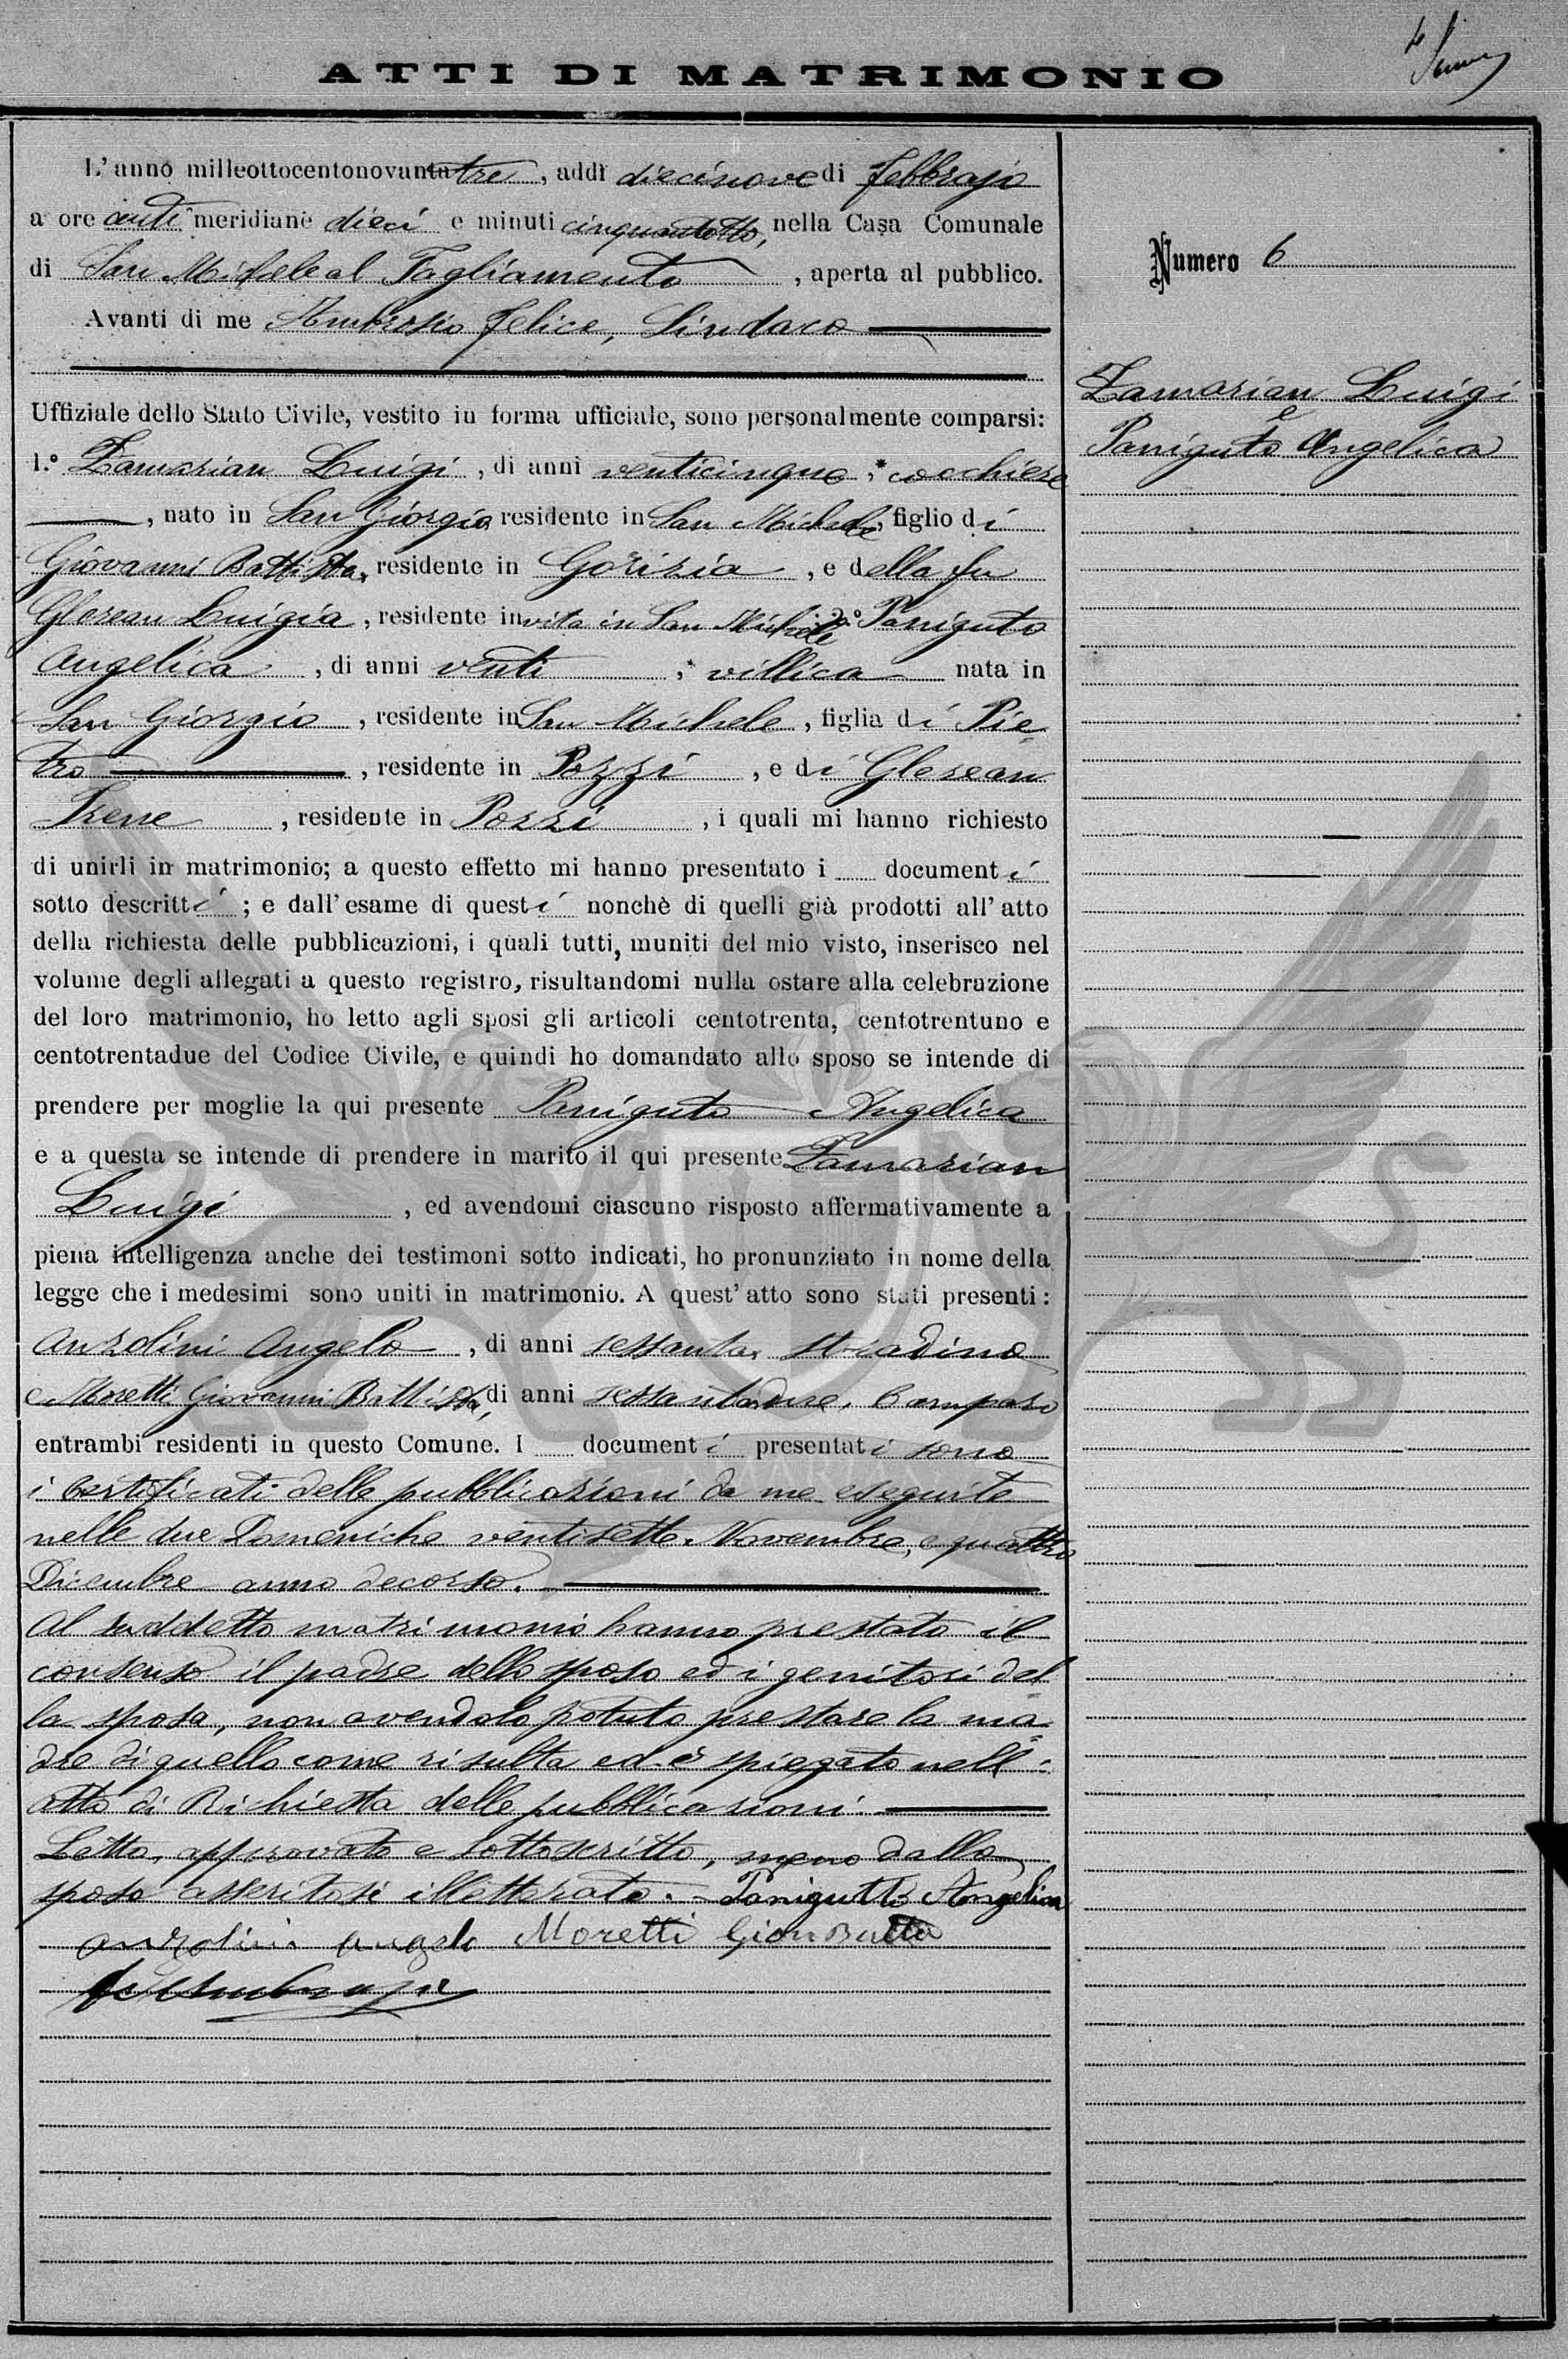 ATTI DI MATRIMONIO
L'anno milleottocentonovantatre, addì diecinove di Febbrajo
a ore anti meridiane dieci e minuti cinquantotto, nella Casa Comunale
di San Michele al Tagliamento, aperta al pubblico.
Avanti di me Ambrosio Felice, Sindaco
Numero 6
Zamarian Luigi
e
Paniguto Angelica
Uffiziale dello Stato Civile, vestito in forma ufficiale, sono personalmente comparsi:
1.º Zamarian Luigi, di anni venticinque, cocchiere
, nato in San Giorgio residente in San Michele, figlio di
Giovanni Battista, residente in Gorizia, e della fu
Glerean Luigia, residente in vita in San Michele 2º Paniguto
Angelica, di anni venti, villica nata in
San Giorgio, residente in San Michele, figlia di Pie-
tro, residente in Pozzi, e di Glerean
Irene, residente in Pozzi, i quali mi hanno richiesto
di unirli in matrimonio; a questo effetto mi hanno presentato i documenti
sotto descritti; e dall'esame di questi nonchè di quelli già prodotti all'atto
della richiesta delle pubblicazioni, i quali tutti, muniti del mio visto, inserisco nel
volume degli allegati a questo registro, risultandomi nulla ostare alla celebrazione
del loro matrimonio, ho letto agli sposi gli articoli centotrenta, centotrentuno e
centotrentadue del Codice Civile, e quindi ho domandato allo sposo se intende di
prendere per moglie la qui presente Paniguto Angelica
e a questa se intende di prendere in marito il qui presente Zamarian
Luigi, ed avendomi ciascuno risposto affermativamente a
piena intelligenza anche dei testimoni sotto indicati, ho pronunziato in nome della
legge che i medesimi sono uniti in matrimonio. A quest'atto sono stati presenti:
Anzolini Angelo, di anni sessanta, stradino
e Moretti Giovanni Battista, di anni sessantadue, Camparo
entrambi residenti in questo Comune. I documenti presentati sono
i Certificati delle pubblicazioni da me eseguite
nelle due Domeniche ventisette Novembre, e quattro
Dicembre anno decorso.
Al suddetto matrimonio hanno prestato il
consenso il padre dello sposo ed i genitori del
la sposa, non avendolo potuto prestare la ma-
dre di quello come risulta ed è spiegato nell'
atto di Richiesta delle pubblicazioni.
Letto, approvato e sottoscritto, meno dallo
sposo asseritosi illetterato. Panigutto Angelica
Anzolini Angelo Moretti Gion Batta